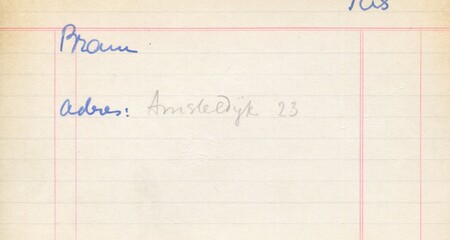 Bram
adres: Amsteldijk 23